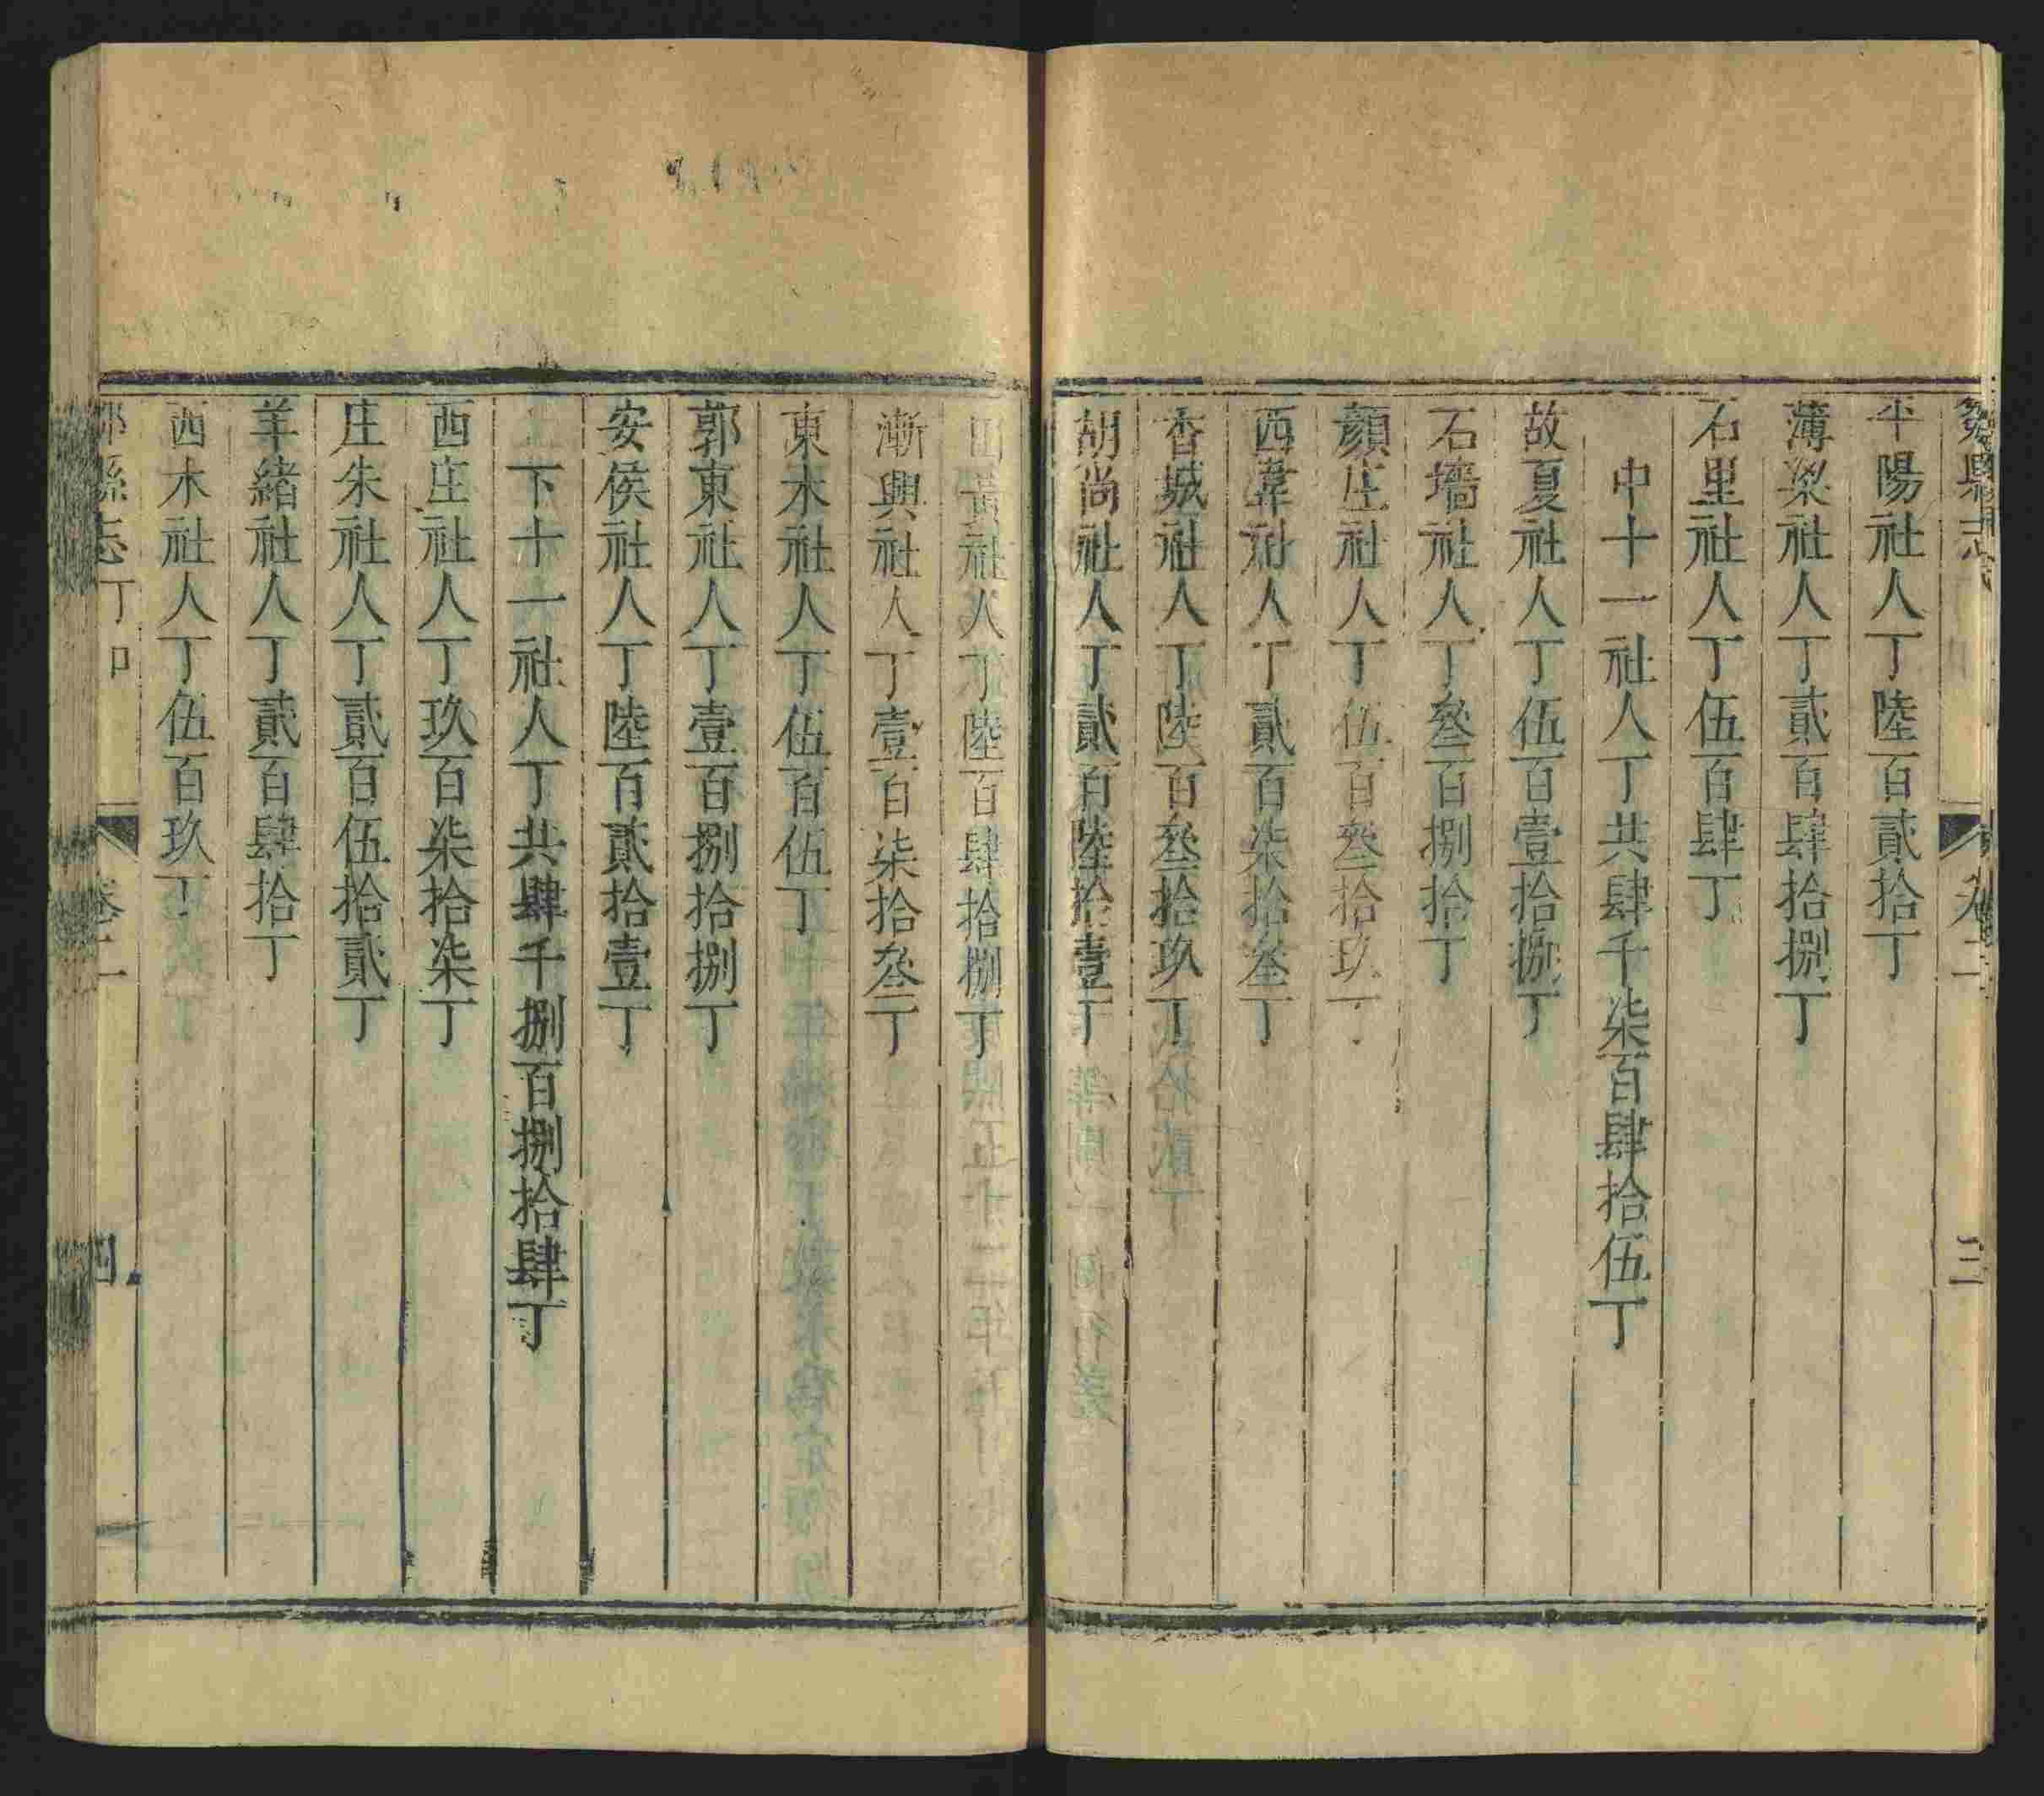 鄒縣志
卷二
三
平陽社人丁陸百貳拾丁
薄梁社人丁貳百肆拾捌丁
石里社人丁伍百肆丁
中十一社人丁共肆千柒百肆拾伍丁
故夏社人丁伍百壹拾捌丁
石墻社人丁叄百捌拾丁
顏庄社人丁伍百叄拾玖丁
西韋社人丁貳百柒拾叄丁
香城社人丁陸百叄拾玖丁
胡尚社人丁貳百陸拾壹丁
田黃社人丁陸百肆拾捌丁
漸興社人丁壹百柒拾叄丁
東木社人丁伍百伍丁
郭東社人丁壹百捌拾捌丁
安侯社人丁陸百貳拾壹丁
下十一社人丁共肆千捌百捌拾肆丁
西庄社人丁玖百柒拾柒丁
庄朱社人丁貳百伍拾貳丁
羊緒社人丁貳百肆拾丁
西木社人丁伍百玖丁
鄒縣志
卷二
四